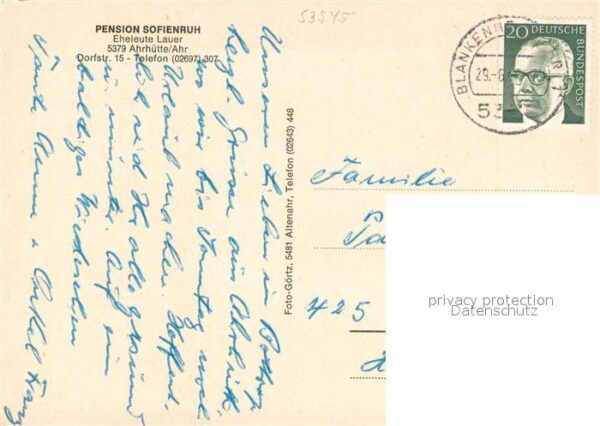 53545
PENSION SOFIENRUH
Eheleute Lauer
5379 Ahrhütte/Ahr
Dorfstr. 15 - Telefon (02697) 307
Unseren Lieben in Bottrop
herzl. Grüsse aus Ahrhütte
wo wir bis Sonntag noch
Urlaub machen. Hoffent-
lich seid Ihr alle gesund
u. munter. Auf ein
baldiges Wiedersehen
Tante Anna u. Onkel Franz
Foto-Görtz, 5481 Altenahr, Telefon (02643) 448
BLANKENH
29.-8
53
20 DEUTSCHE
BUNDESPOST
Familie
425
privacy protection
Datenschutz